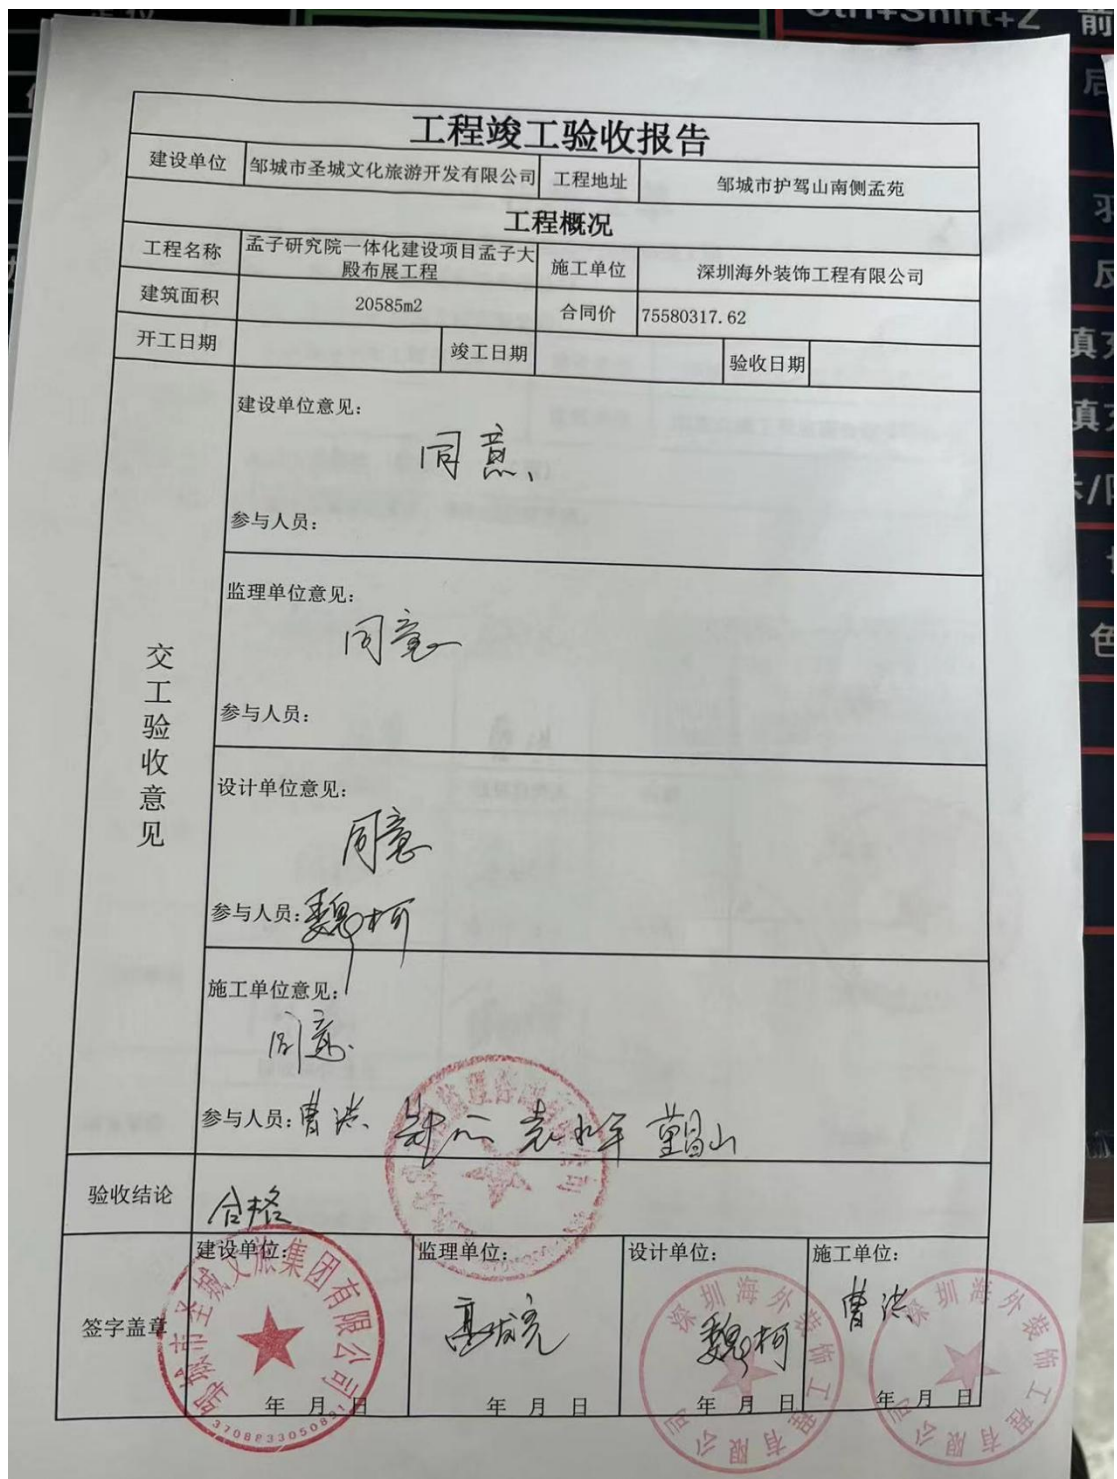 Ctrl+Shift+Z 前
工程竣工验收报告
建设单位 邹城市圣城文化旅游开发有限公司 工程地址 邹城市护驾山南侧孟苑
工程概况
工程名称 孟子研究院一体化建设项目孟子大殿布展工程 施工单位 深圳海外装饰工程有限公司
建筑面积 20585m2 合同价 75580317.62
开工日期 竣工日期 验收日期
交工验收意见
建设单位意见:
同意、
参与人员:
监理单位意见:
同意
参与人员:
设计单位意见:
同意
参与人员: 魏柯
施工单位意见:
同意.
参与人员: 曹洪
验收结论 合格
签字盖章
建设单位: 监理单位: 设计单位: 施工单位:
魏柯 曹洪
年 月 日 年 月 日 年 月 日 年 月 日
邹城市圣城文旅集团有限公司
深圳海外装饰工程有限公司
深圳海外装饰工程有限公司